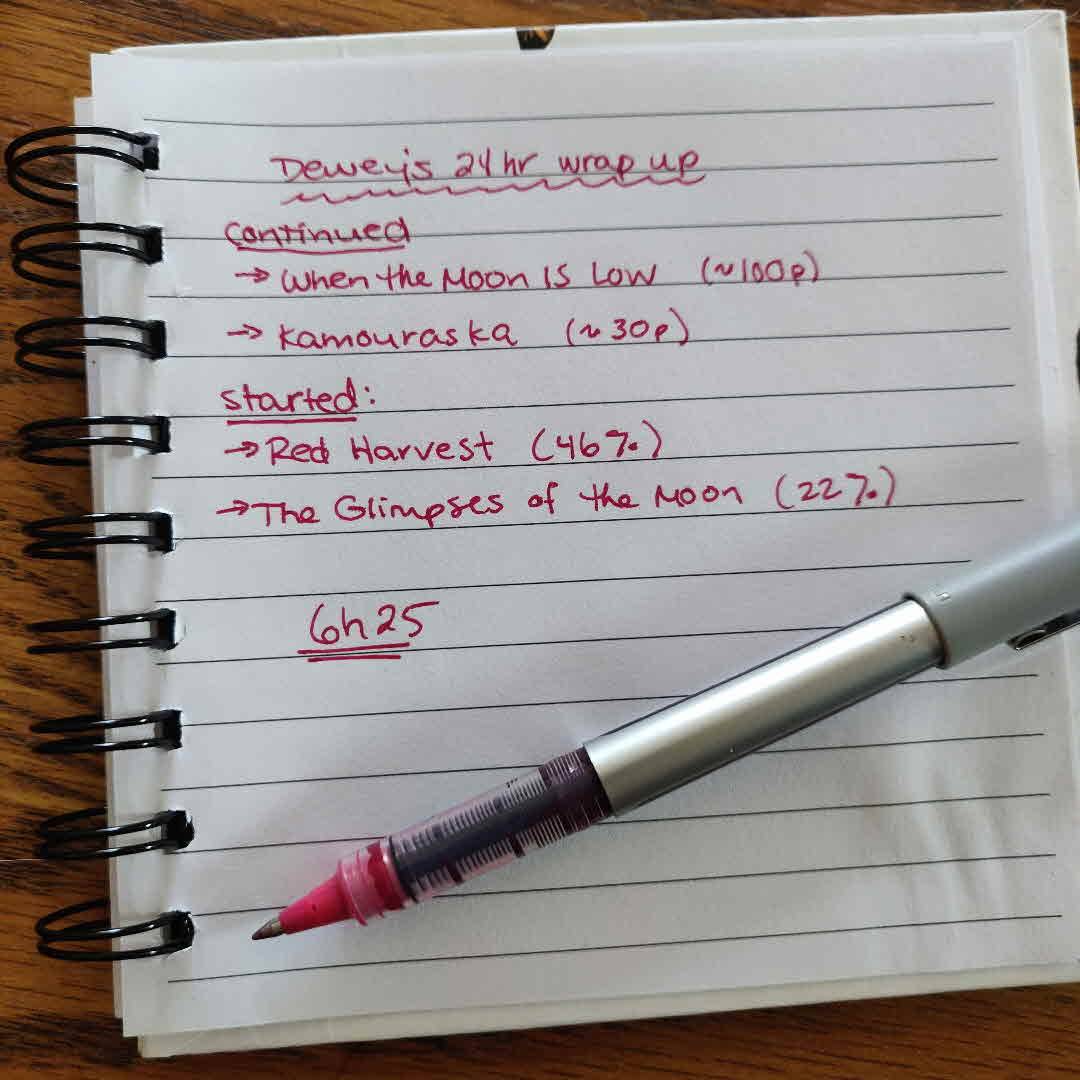 Dewey's 24hr wrap up
Continued
→ When the Moon Is Low (~100p)
→ Kamouraska (~30p)
Started:
→ Red Harvest (46%)
→ The Glimpses of the Moon (22%)
6h25